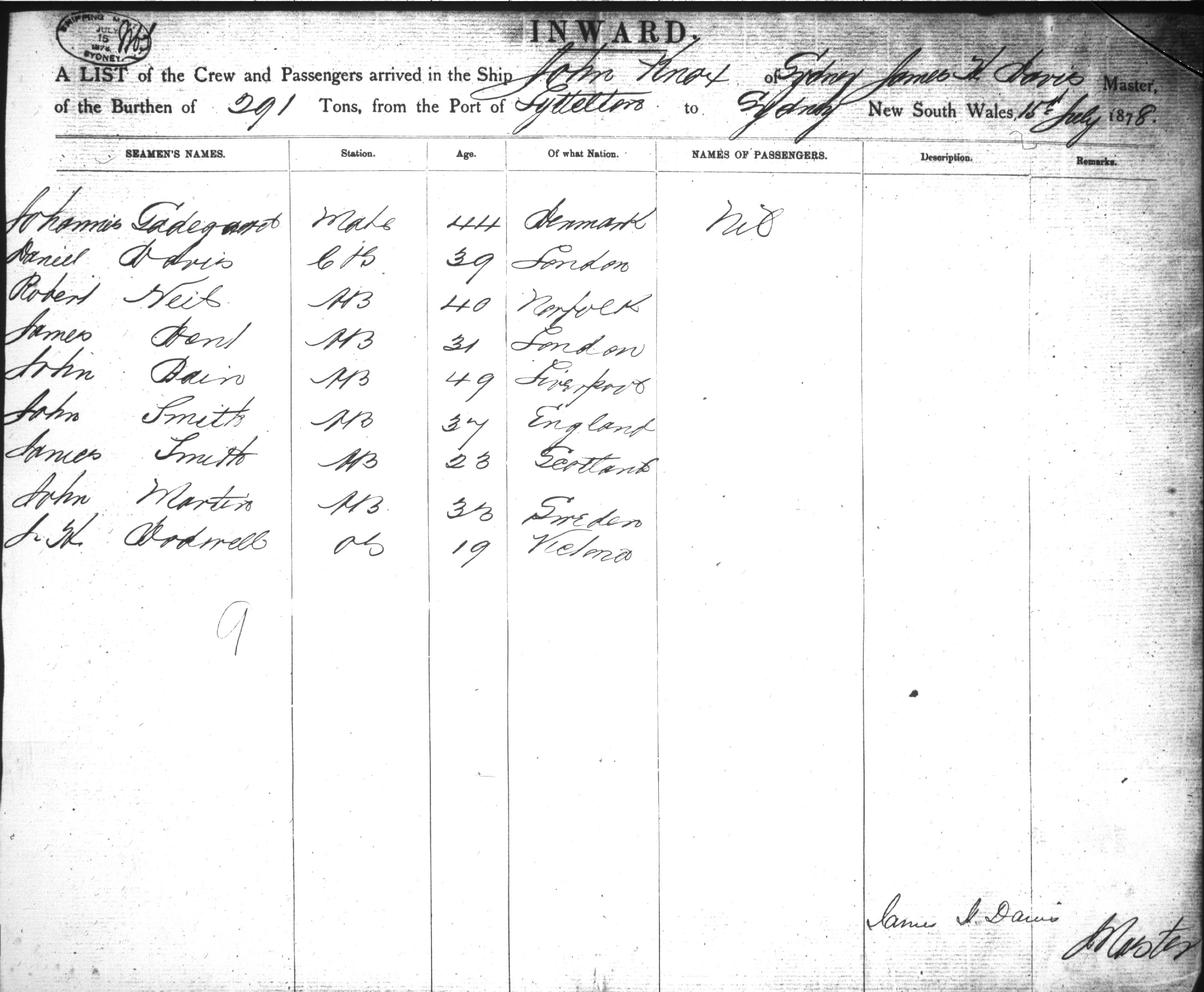 SHIPPING M
JULY
15
1878
SYDNEY
INWARD.
A LIST of the Crew and Passengers arrived in the Ship John Knox of Sydney James H Davis Master,
of the Burthen of 291 Tons, from the Port of Lyttelton to Sydney New South Wales, 15th July 1878.
SEAMEN'S NAMES. Station. Age. Of what Nation. NAMES OF PASSENGERS. Description. Remarks.
Johannis Mate 44 Denmark Nil
Daniel Davis 39 London
Robert Neil AB 40 Norfolk
James AB 31 London
John Bain AB 49 Liverpool
John Smith AB 37 England
James Smith AB 23 Scotland
John Martin AB 33 Sweden
Dodwell OS 19 Victoria
9
James H. Davis
Master